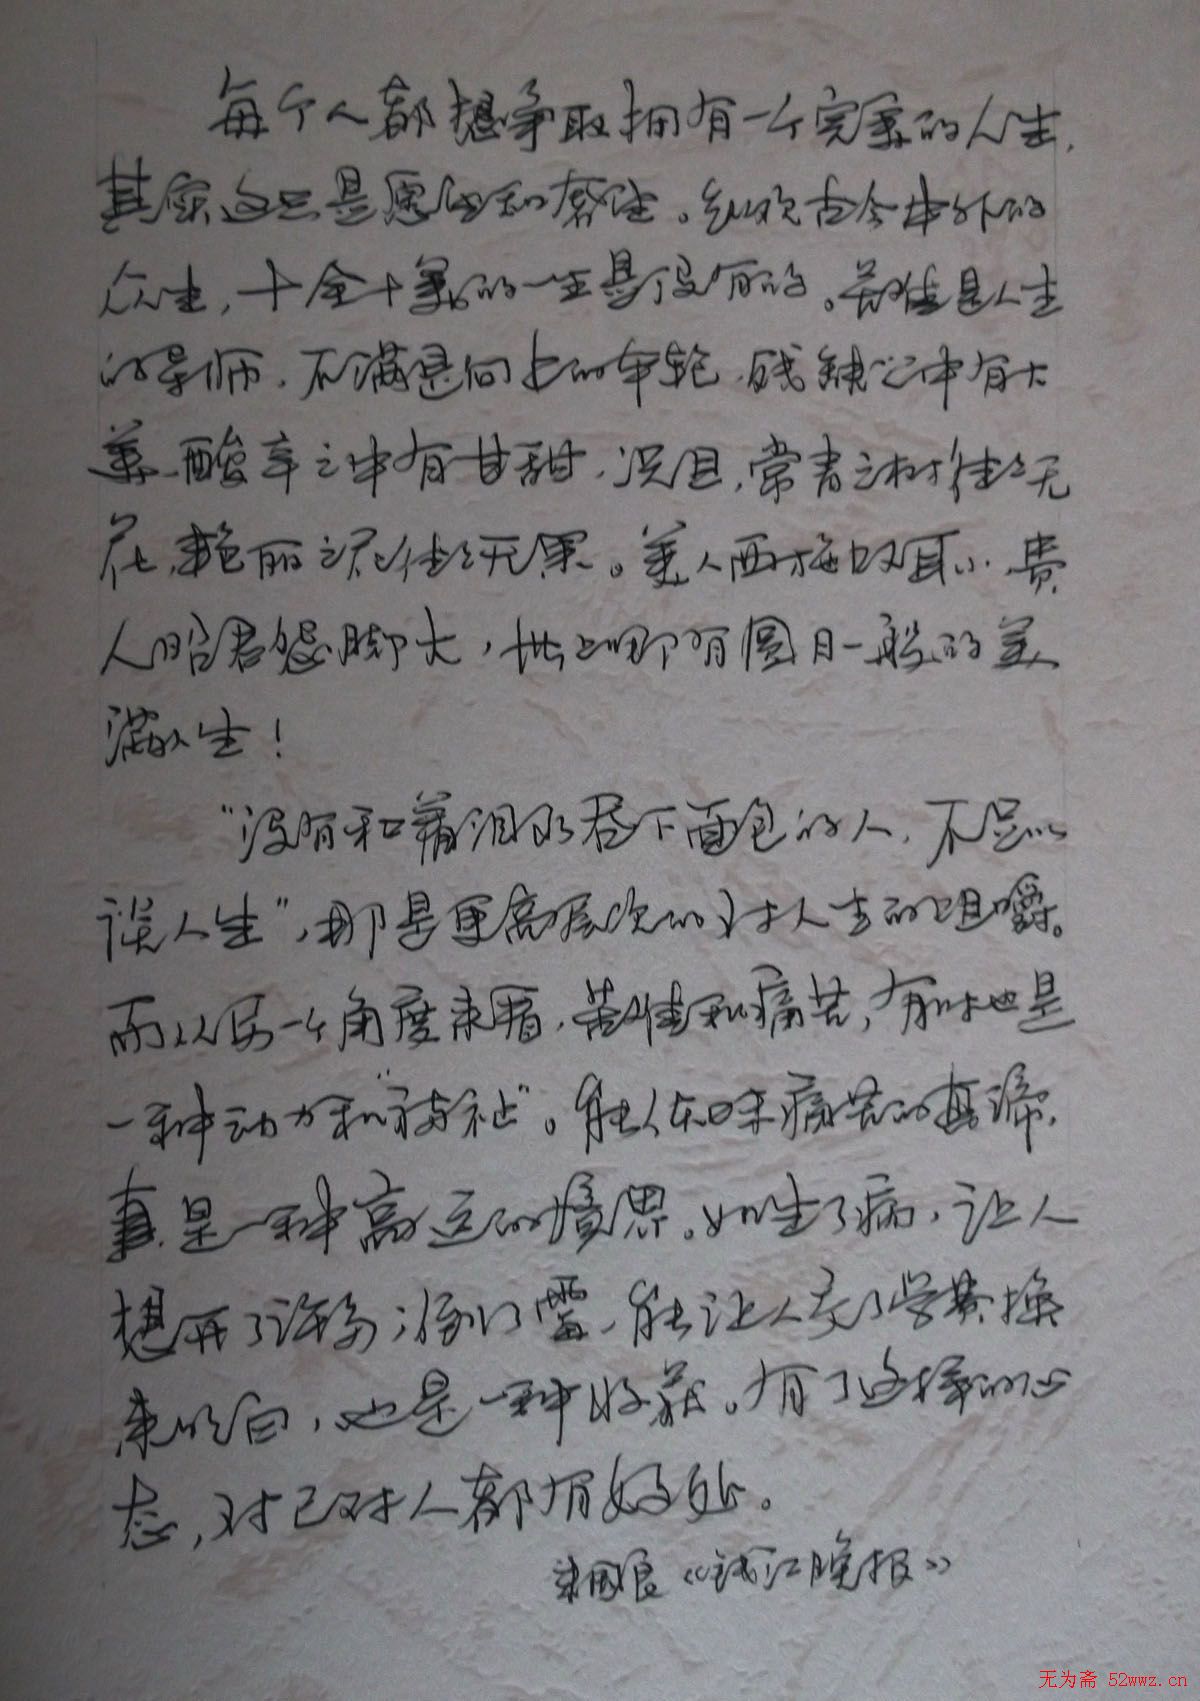 每个人都想争取拥有一个完美的人生，
其实这只是愿望和奢望。纵观古今中外的
众生，十全十美的一生是没有的。苦难是人生
的导师，不满是向上的车轮，残缺之中有大
美，酸辛之中有甘甜，况且，常青之树往往无
花，艳丽之花往往无果。美人西施叹耳小，贵
人昭君怨脚大，世上哪有圆月一般的美
满人生！
“没有和着泪水吞下面包的人，不足以
谈人生”，那是更高层次的对人生的咀嚼。
而从另一个角度来看，苦难和痛苦，有时也是
一种动力和“福祉”。能体味痛苦的真谛，
真是一种高远的境界。如生了病，让人
想开了许多；，能让人交了学费换
来明白，也是一种收获。有了这样的心
态，对己对人都有好处。
来国良《钱江晚报》
无为斋 52wwz.cn